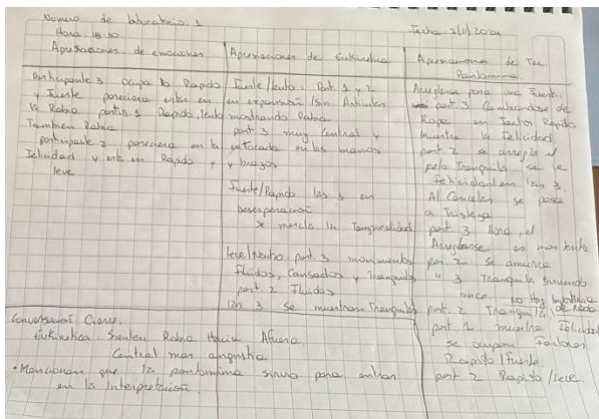 Numero de laboratorio. 1
Fecha
Hora 18:30
Apreciaciones de emociones
Apreciaciones de Eukinetica
Apreciaciones de Tec.
Pantomima
Participante 3 ocupa lo Rapido
y Fuente pareciera estar en
la Rabia 1 Rapido, lento
Tambien Rabia
participante 2 pareciera en la
Felicidad y esta en Rapido y
leve
Fuente/lento. Part. 1 y 2
en expansión /sin Anticulen
mostrando Rabia
part. 3 muy Central y
enfocada en las manos
y brazos
Fuente/Rapido las 3 en
Desesperación
se mezcla la Temporalidad
leve/ part. 3 movimientos
Fluidos, Cansados y Tranquilos
part. 2 Fluidos
las 3 se muestran Tranquilas
Arreglarse para una Fiesta.
part. 3 Cambiandose de
Ropa en Factor Rápido
muestra la Felicidad
part. 2 se arregla el
pelo Tranquila se ve
Felicidad en las 3.
Al Cancelar se pasa
a Tristeza
part. 3 llora, el
Arreglarse es mas lento
par. 2 se
" 3 Tranquila
no hay
part. 2 Tranquila, de Nada
part. 1 muestra Felicidad
se ocupan Factores
Rapido/Fuente
part. 2 Rapido/leve
Conversación Cierre.
Eukinetica: Sienten Rabia Hacia Afuera
Central mas angustia
• Mencionan que la pantomima sirvio para entrar
en la Interpretación.